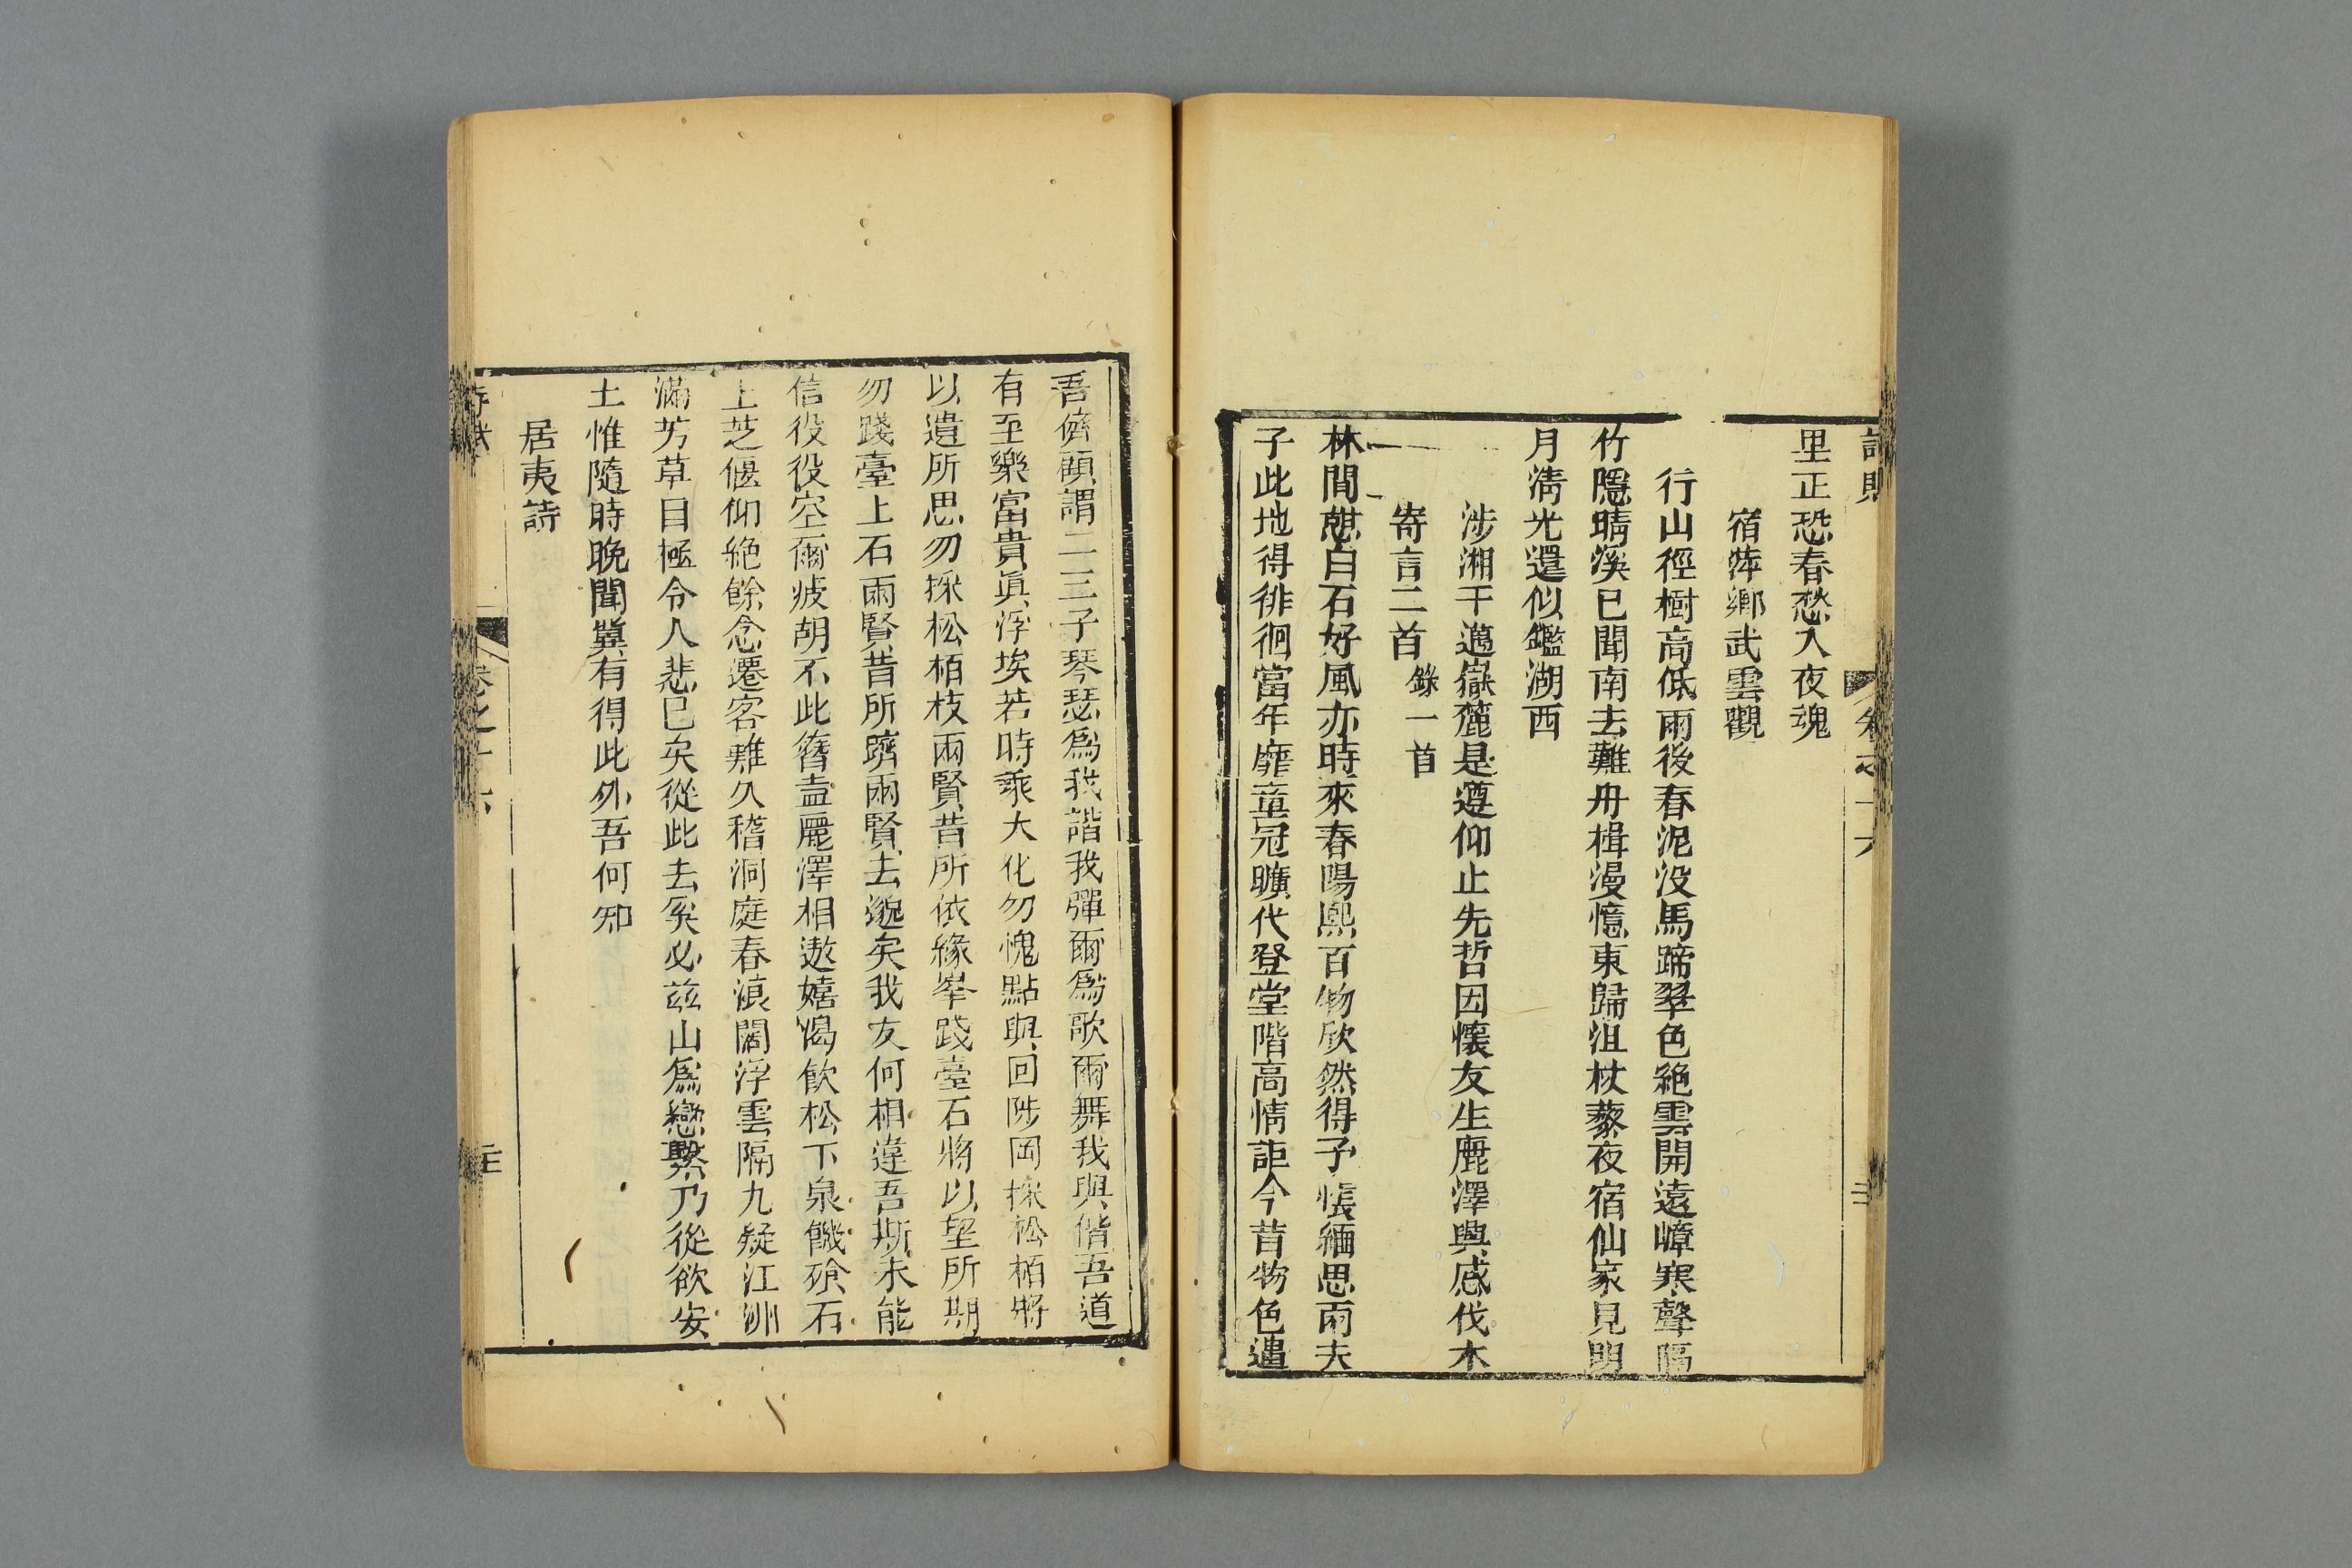 里正恐春愁入夜魂
宿萍鄉武雲觀
行山徑樹高低雨後春泥没馬蹄翠色絶雲開遠嶂寒聲隔
竹隱晴溪已聞南去難舟楫漫憶東歸沮杖藜夜宿仙家見明
月淸光還似鑑湖西
涉湘干邁嶽麓是遵仰止先哲因懷友生麗澤興感伐木
寄言二首錄一首
林間憇白石好風亦時來春陽熙百物欣然得予懷緬思兩夫
子此地得徘徊當年靡童冠曠代登堂階高情詎今昔物色遺
吾儕顧謂二三子琴瑟爲我諧我彈爾爲歌爾舞我與偕吾道
有至樂富貴眞浮埃若時乘大化勿愧點與回陟岡採松栢將
以遺所思勿採松栢枝兩賢昔所依緣峯踐臺石將以望所期
勿踐臺上石兩賢昔所躋兩賢去邈矣我友何相違吾斯未能
信役役空爾疲胡不此簪盍麗澤相遨嬉渴飲松下泉饑飧石
上芝偃仰絶餘念遷客難久稽洞庭春浪闊浮雲隔九疑江洲
滿芳草目極令人悲已矣從此去奚必兹山爲戀繫乃從欲安
土惟隨時晚聞冀有得此外吾何知
居夷詩
卷之十六